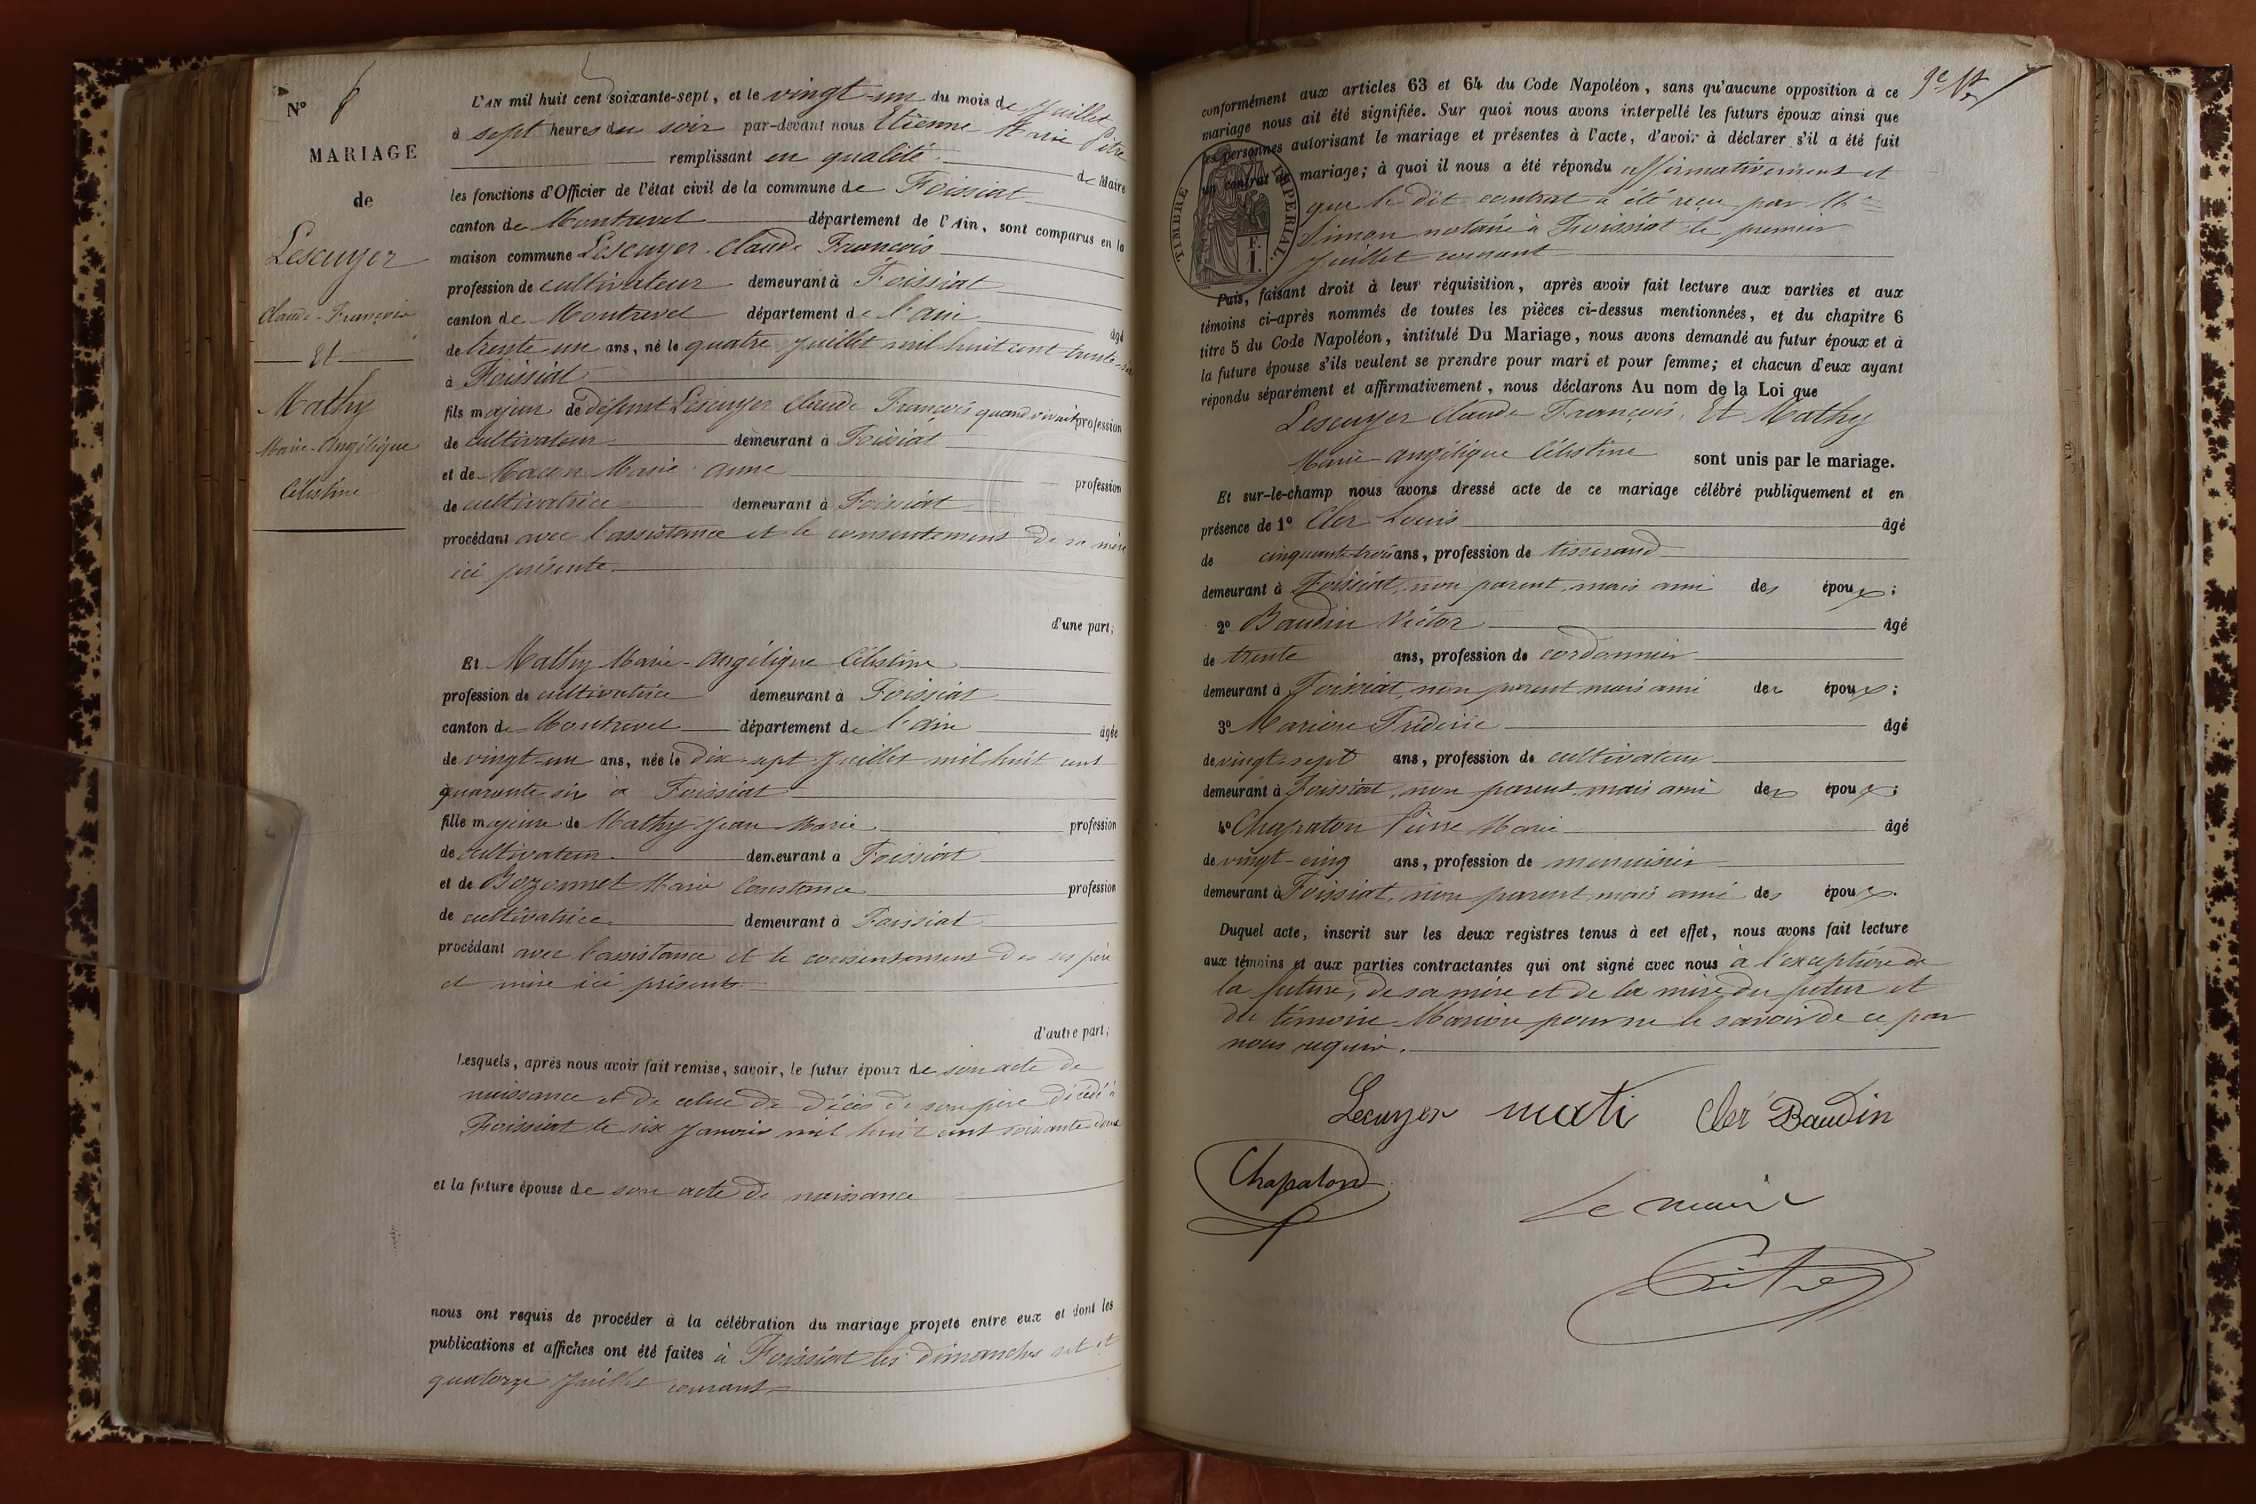 N° 8
MARIAGE
de
Lescuyer
Claude-François
Et
Mathy
Marie-Angélique
Célestine
L'AN mil huit cent soixante-sept, et le vingt-un du mois de Juillet
à sept heures du soir par-devant nous Etienne Marie Pitre
remplissant en qualité de Maire
les fonctions d'Officier de l'état civil de la commune de Foissiat
canton de Montrevel département de l'Ain, sont comparus en la
maison commune Lescuyer Claude François
profession de cultivateur demeurant à Foissiat
canton de Montrevel département de l'ain âgé
de trente un ans, né le quatre Juillet mil huit cent trente-six
à Foissiat
fils majeur de défunt Lescuyer Claude François quand vivait profession
de cultivateur demeurant à Foissiat
et de Macon Marie anne profession
de cultivatrice demeurant à Foissiat
procédant avec l'assistance et le consentement de sa mère
ici présente
d'une part;
Et Mathy Marie-Angélique Célestine
profession de cultivatrice demeurant à Foissiat
canton de Montrevel département de l'ain âgée
de vingt-un ans, née le dix-sept Juillet mil huit cent
quarante six à Foissiat
fille majeure de Mathy Jean Marie profession
de cultivateur demeurant à Foissiat
et de Bozonnet Marie Constance profession
de cultivatrice demeurant à Foissiat
procédant avec l'assistance et le consentement de ses père
et mère ici présents
d'autre part;
Lesquels, après nous avoir fait remise, savoir, le futur époux de son acte de
naissance et de celui de décès de son père décédé à
Foissiat le six Janvier mil huit cent soixante deux
et la future épouse de son acte de naissance
nous ont requis de procéder à la célébration du mariage projeté entre eux et dont les
publications et affiches ont été faites à Foissiat les dimanches sept et
quatorze Juillet courant
conformément aux articles 63 et 64 du Code Napoléon, sans qu'aucune opposition à ce
mariage nous ait été signifiée. Sur quoi nous avons interpellé les futurs époux ainsi que
les personnes autorisant le mariage et présentes à l'acte, d'avoir à déclarer s'il a été fait
un contrat de mariage; à quoi il nous a été répondu affirmativement et
que le dit contrat a été reçu par Me
Simon notaire à Foissiat le premier
Juillet courant
TIMBRE IMPERIAL.
Puis, faisant droit à leur réquisition, après avoir fait lecture aux parties et aux
témoins ci-après nommés de toutes les pièces ci-dessus mentionnées, et du chapitre 6
titre 5 du Code Napoléon, intitulé Du Mariage, nous avons demandé au futur époux et à
la future épouse s'ils veulent se prendre pour mari et pour femme; et chacun d'eux ayant
répondu séparément et affirmativement, nous déclarons Au nom de la Loi que
Lescuyer Claude François, Et Mathy
Marie-angélique Célestine sont unis par le mariage.
Et sur-le-champ nous avons dressé acte de ce mariage célébré publiquement et en
présence de 1° Cler Louis âgé
de cinquante-trois ans, profession de tisserand
demeurant à Foissiat, non parent, mais ami des époux;
2° Baudin Victor âgé
de trente ans, profession de cordonnier
demeurant à Foissiat, non parent mais ami des époux;
3° Marion Fréderic âgé
de vingt-sept ans, profession de cultivateur
demeurant à Foissiat, non parent, mais ami des époux;
4° Chapaton Pierre Marie âgé
de vingt-cinq ans, profession de menuisier
demeurant à Foissiat, non parent mais ami des époux.
Duquel acte, inscrit sur les deux registres tenus à cet effet, nous avons fait lecture
aux témoins et aux parties contractantes qui ont signé avec nous à l'exception de
la future, de sa mère et de la mère du futur et
du témoin Marion pour ne le savoir de ce par
nous requis.
Lecuyer mati Cler Baudin
Chapaton
Le maire
Pitre